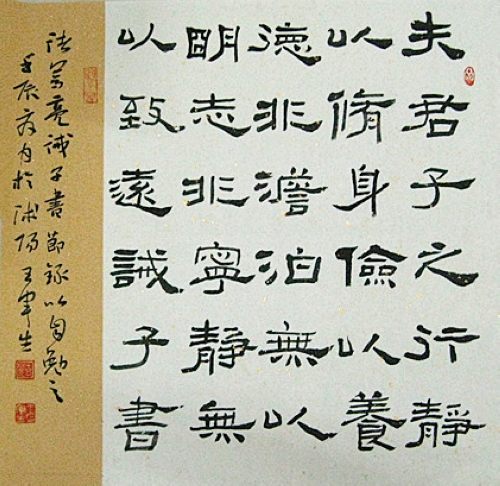 夫君子之行靜
以脩身儉以養
德非澹泊無以
明志非寧靜無
以致遠誡子書
諸葛亮誡子書節録以自勉之
壬辰夏月於陽王軍生